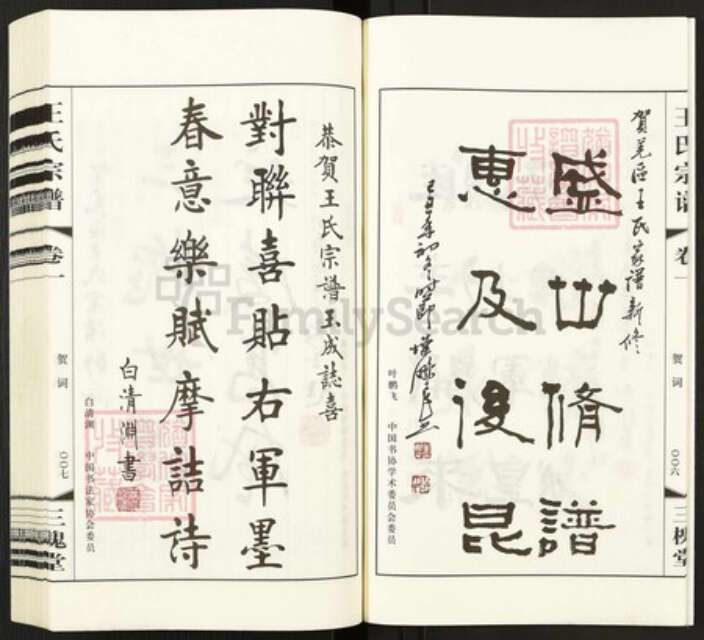 王氏宗谱
卷一
贺词
〇〇六
三槐堂
賀羌區王氏家譜新修
盛世修譜
惠及後昆
叶鹏飞 中国书协学术委员会委员
恭賀王氏宗譜玉成誌喜
對聯喜貼右軍墨
春意樂賦摩詰詩
白清淵書
白清渊 中国书法家协会委员
王氏宗譜
卷一
贺词
〇〇七
三槐堂
FamilySearch